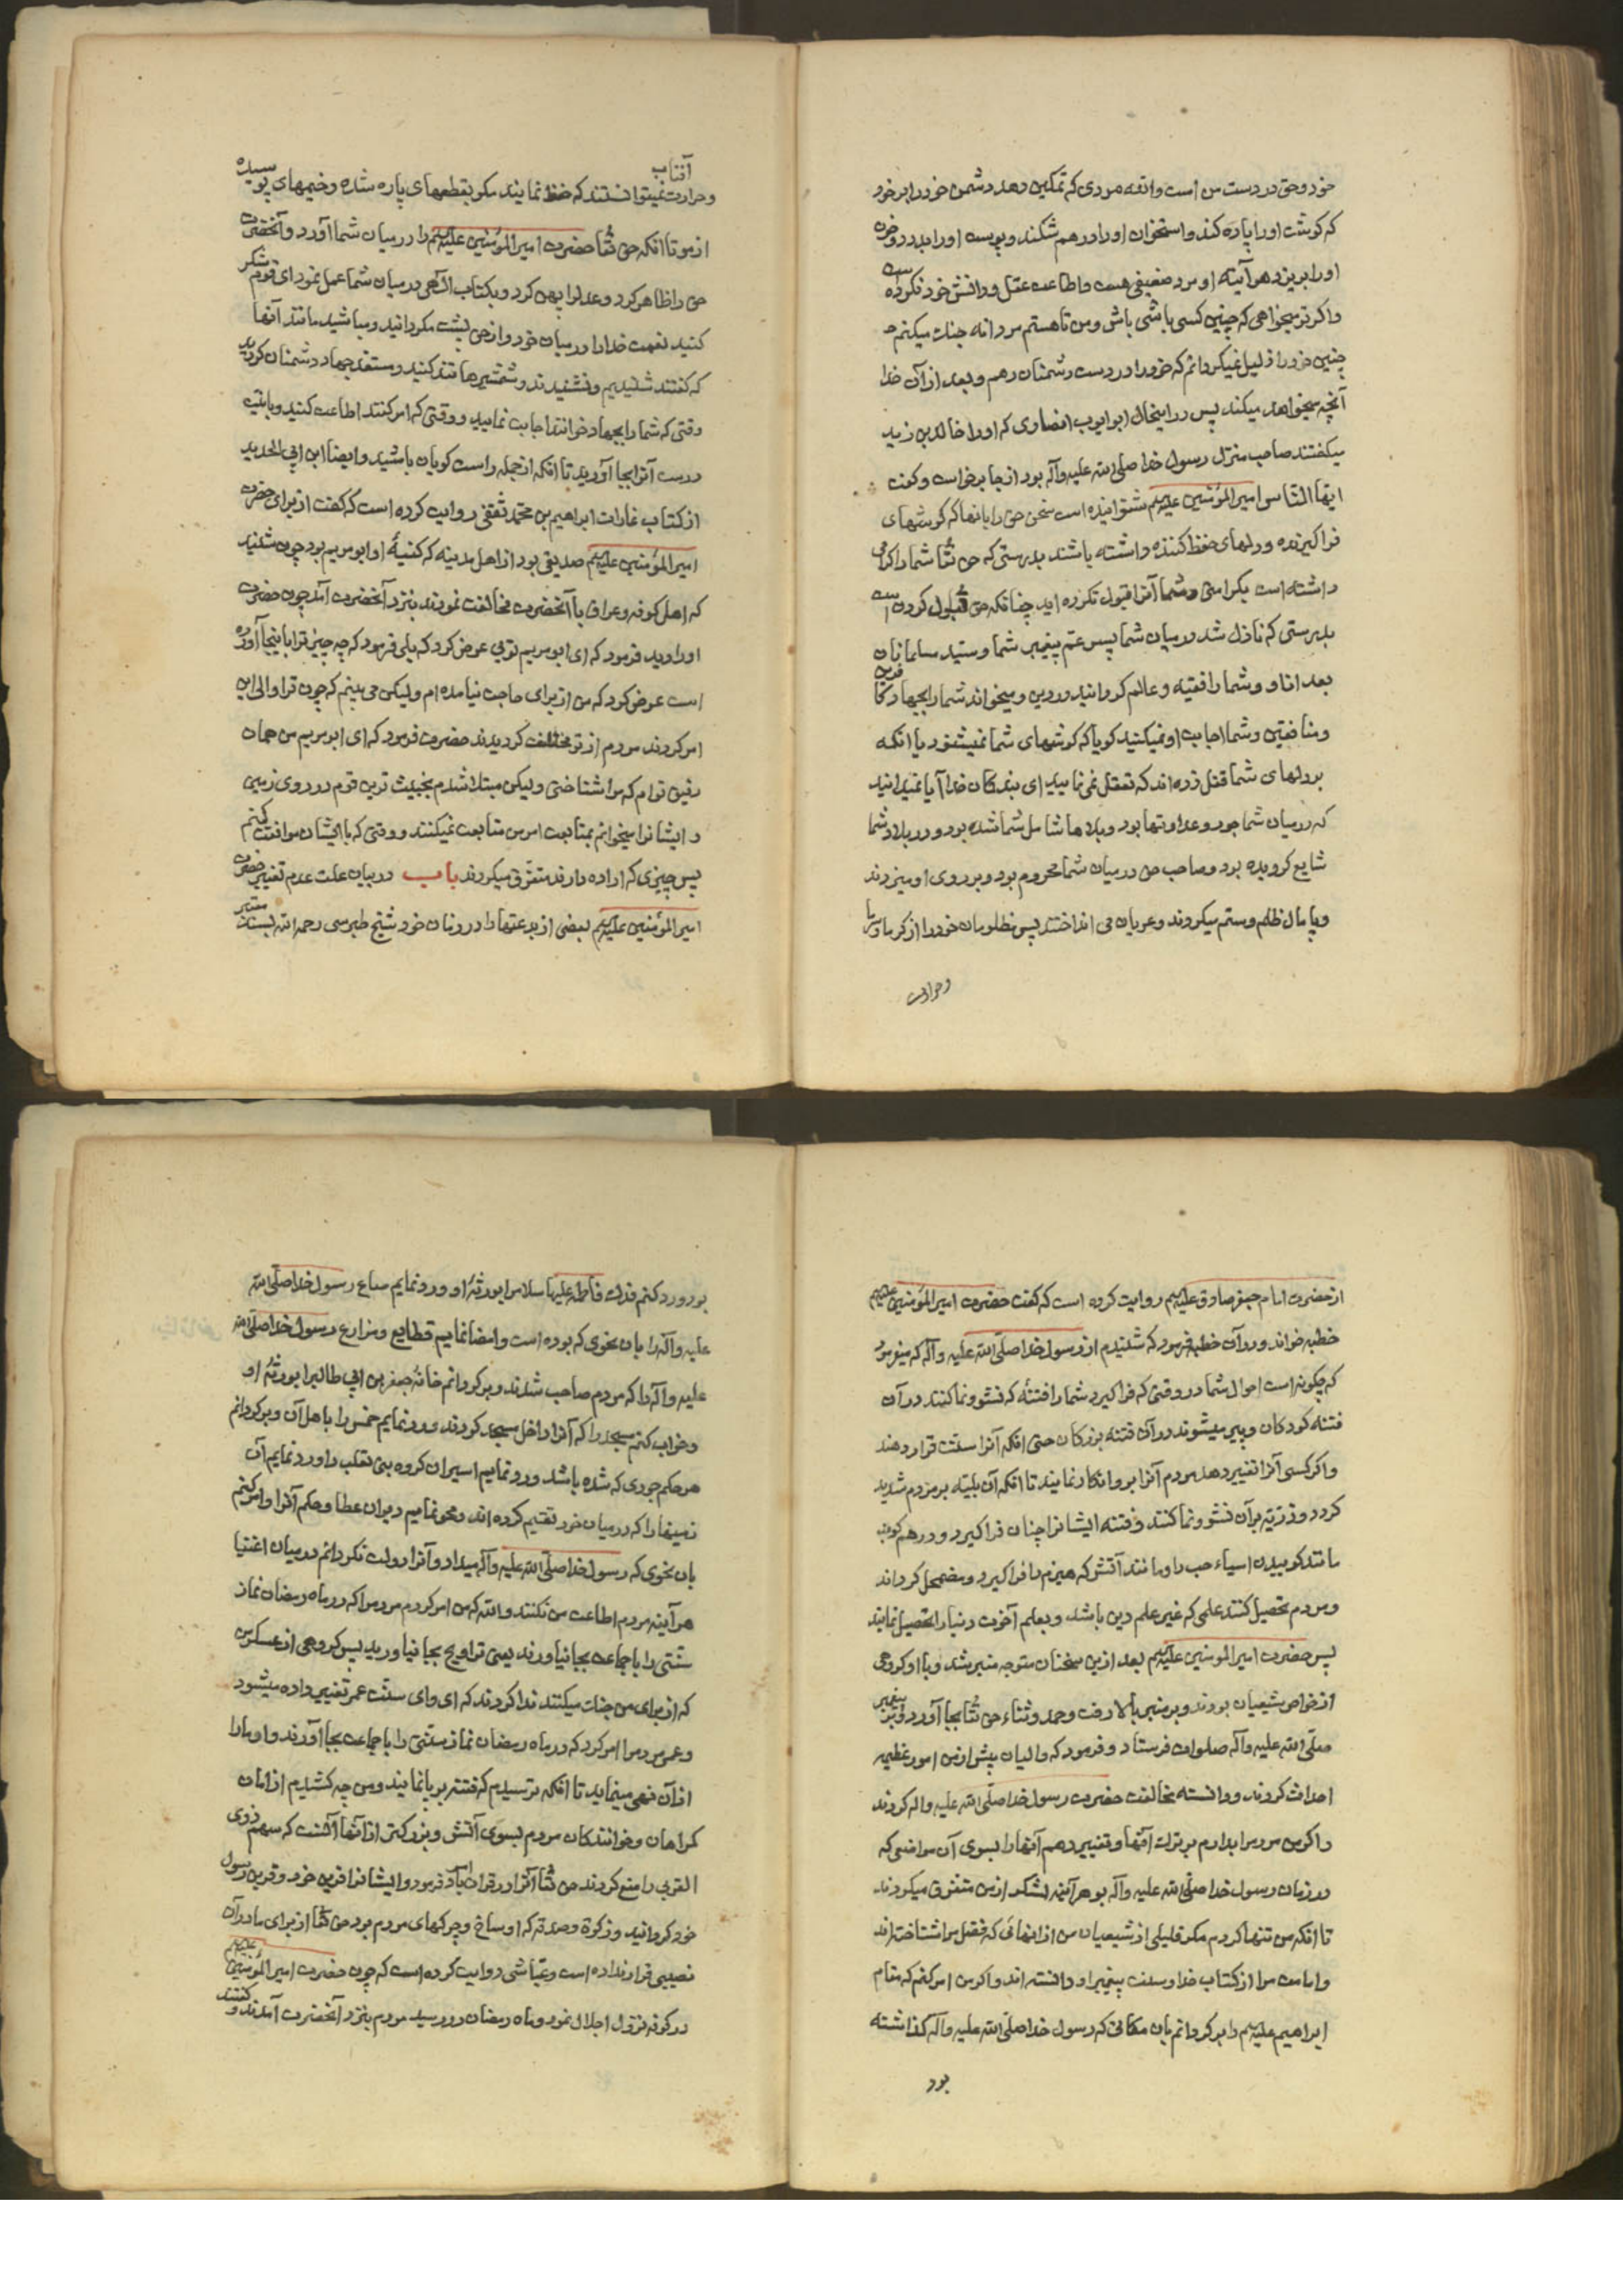 خود و حق در دست من است والله مردی که تمکین دهد دشمن خود را بر خود
که گوشت او را پاره کند و استخوان او را درهم شکند و پوست او را بدرد و خون
او را بریزد هر آینه او مرد ضعیفی هست و اطاعت عقل و دانش خود نکرده است
و اگر تو میخواهی که چنین کسی باشی باش و من تا هستم مردانه جنک میکنم و
چنین خود را ذلیل نمیکردانم که خود را در دست دشمنان دهم و بعد از آن خدا
آنچه میخواهد میکند پس در اینحال ابو ایوب انصاری که او را خالد بن زید
میکفتند صاحب منزل رسول خدا صلی الله علیه وآله بود از جا برخواست و کفت
ایها الناس امیر المؤمنین علیهم شنوانیده است سخن حق را بانها که کوشهای
فراکیرنده و دلهای حفظ کننده داشته باشند بدرستی که حق تعا شما را کرامی
داشته است بکرامتی و شما آنرا قبول نکرده اید چنانکه حق قبول کردن است
بدرستی که نازل شد در میان شما پسر عم پیغمبر شما و سید مسلمانان
بعد از او و شما را فقیه و عالم کردانید در دین و میخواند شما را بجهاد کافرین
و منافقین و شما اجابت او نمیکنید کویا که کوشهای شما نمیشنود یا انکه
بر دلهای شما قفل زده اند که تعقل نمی نمایید ای بندکان خدا آیا نمیدانید
که در میان شما جور و عداوتها بود و بلاها شامل شما شده بود و در بلاد شما
شایع کردیده بود و صاحب حق در میان شما محروم بود و بر روی او میزدند
و پامال ظلم و ستم میکردند و عریان می انداختند پس مظلومان خود را از کرما و سرما
و حرارت
آفتاب
و حرارت نمیتوانستند که حفظ نمایند مکر بقطعهای پاره شده و خیمهای پوسیده
از مو تا انکه حق تعا حضرت امیر المؤمنین علیهم را در میان شما آورد و آنحضرت
حق را ظاهر کرد و عدل را پهن کرد و بکتاب الهی در میان شما عمل نمود ای قوم شکر
کنید نعمت خدا را در میان خود و از حق پشت مکردانید و مباشید مانند آنها
که کفتند شنیدیم و نشنیدند و شمشیرها تند کنید و مستعد جهاد دشمنان کردید
وقتی که شما را بجهاد خوانند اجابت نمایید و وقتی که امر کنند اطاعت کنید و با نیت
درست آنرا بجا آورید تا انکه از جمله راست کویان باشید و ایضا ابن ابی الحدید
از کتاب غارات ابراهیم بن محمد ثقفی روایت کرده است که کفت از برای حضرت
امیر المؤمنین علیهم صدیقی بود از اهل مدینه که کنیۀ او ابو مریم بود چون شنید
که اهل کوفه و عراق با آنحضرت مخالفت نمودند بنزد آنحضرت آمد چون حضرت
او را دید فرمود که ای ابو مریم توئی عرض کرد که بلی فرمود که چه چیز ترا باینجا آورده
است عرض کرد که من از برای حاجت نیامده ام ولیکن می بینم که چون ترا والی این
امر کردند مردم از تو مختلف کردیدند حضرت فرمود که ای ابو مریم من همان
رفیق توام که مرا شناختی ولیکن مبتلا شدم بخبیث ترین قوم در روی زمین
و ایشانرا میخوانم بمتابعت امر من متابعت نمیکنند و وقتی که با ایشان موافقت کنم
پس چیزی که اراده دارند متفرق میکردند باب در بیان علت عدم تغییر حضرت
امیر المؤمنین علیهم بعضی از بدعتها را در زمان خود شیخ طبرسی رحمه الله بسند معتبر
از حضرت امام جعفر صادق علیهم روایت کرده است که کفت حضرت امیر المؤمنین علیهم
خطبه خواند و در آن خطبه فرمود که شنیدم از رسول خدا صلی الله علیه وآله که میفرمود
که چکونه است احوال شما در وقتی که فراکیرد شما را فتنۀ که نشو و نما کنند در آن
فتنه کودکان و پیر میشوند در آن فتنه بزرکان حتی انکه آنرا سنت قرار دهند
و اکر کسی آنرا تغییر دهد مردم آنرا بر او انکار نمایند تا انکه آن بلیّه بر مردم شدید
کردد و ذریّه بر آن نشو و نما کنند و فتنه ایشانرا چنان فراکیرد و درهم کوبد
مانند کوبیدن اسیاء حب را و مانند آتش که هیزم را فراکیرد و مضمحل کرداند
و مردم تحصیل کنند علمی که غیر علم دین باشد و بعلم آخرت دنیا را تحصیل نمایند
پس حضرت امیر المومنین علیهم بعد از این سخنان متوجه منبر شد و با او کروهی
از خواص شیعیان بودند و بر منبر بالا رفت و حمد و ثناء حق تعا بجا آورد و بر پیغمبر
صلی الله علیه وآله صلوات فرستاد و فرمود که والیان پیش از من امور عظیمه
احداث کردند و دانسته مخالفت حضرت رسول خدا صلی الله علیه واله کردند
و اکر من مردم را بدارم بر ترک آنها و تغییر دهم آنها را بسوی آن مواضعی که
در زمان رسول خدا صلی الله علیه وآله بود هر آینه لشکر از من متفرق میکردند
تا انکه من تنها کردم مکر قلیلی از شیعیان من از انهائی که فضل مرا شناخته اند
و امامت مرا از کتاب خدا و سنت پیغمبر او دانسته اند و اکر من امر کنم که مقام
ابراهیم علیهم را بر کردانم بان مکانی که رسول خدا صلی الله علیه وآله کذاشته
بود
بود و رد کنم فدک فاطمه علیها سلام را بورثۀ او و رد نمایم صاع رسول خدا صلی الله
علیه وآله را بان نحوی که بوده است و امضا نمایم قطایع و مزارع رسول خدا صلی الله
علیه وآله را که مردم صاحب شدند و بر کردانم خانۀ جعفر بن ابی طالب را بورثۀ او
و خراب کنم مسجد را که آنرا داخل مسجد کردند و رد نمایم خمس را باهل آن و بر کردانم
هر حکم جوری که شده باشد و رد نمایم اسیران کروه بنی تغلب را و رد نمایم آن
زمینها را که در میان خود تقسیم کرده اند و محو نمایم دیوان عطا و حکم آنرا و امر کنم
بان نحوی که رسول خدا صلی الله علیه وآله میداد و آنرا دولت نکردانم در میان اغنیا
هر آینه مردم اطاعت من نکنند والله که من امر کردم مردم را که در ماه رمضان نماز
سنتی را با جماعت بجا نیاورند یعنی تراویح بجا نیاورید پس کروهی از عسکر من
که از برای من جنک میکنند ندا کردند که ای وای سنت عمر تغییر داده میشود
و عمر مردم را امر کرد که در ماه رمضان نماز سنتی را با جماعت بجا آورند و او ما را
از آن نهی مینماید تا انکه ترسیدم که فتنه بر پا نمایند و من چه کشیدم از امامان
کمراهان و خوانندکان مردم بسوی آتش و بزرکتر از آنها آنست که سهم ذوی
القربی را منع کردند حق تعا آنرا در قران یاد فرمود و ایشانرا قرین خود و قرین رسول
خود کردانید و زکوة و صدقه که اوساخ و چرکهای مردم بود حق تعا از برای ما در آن
نصیبی قرار نداده است و عیّاشی روایت کرده است که چون حضرت امیر المؤمنین علیهم
در کوفه نزول اجلال نمود و ماه رمضان در رسید مردم بنزد آنحضرت آمدند و کفتند